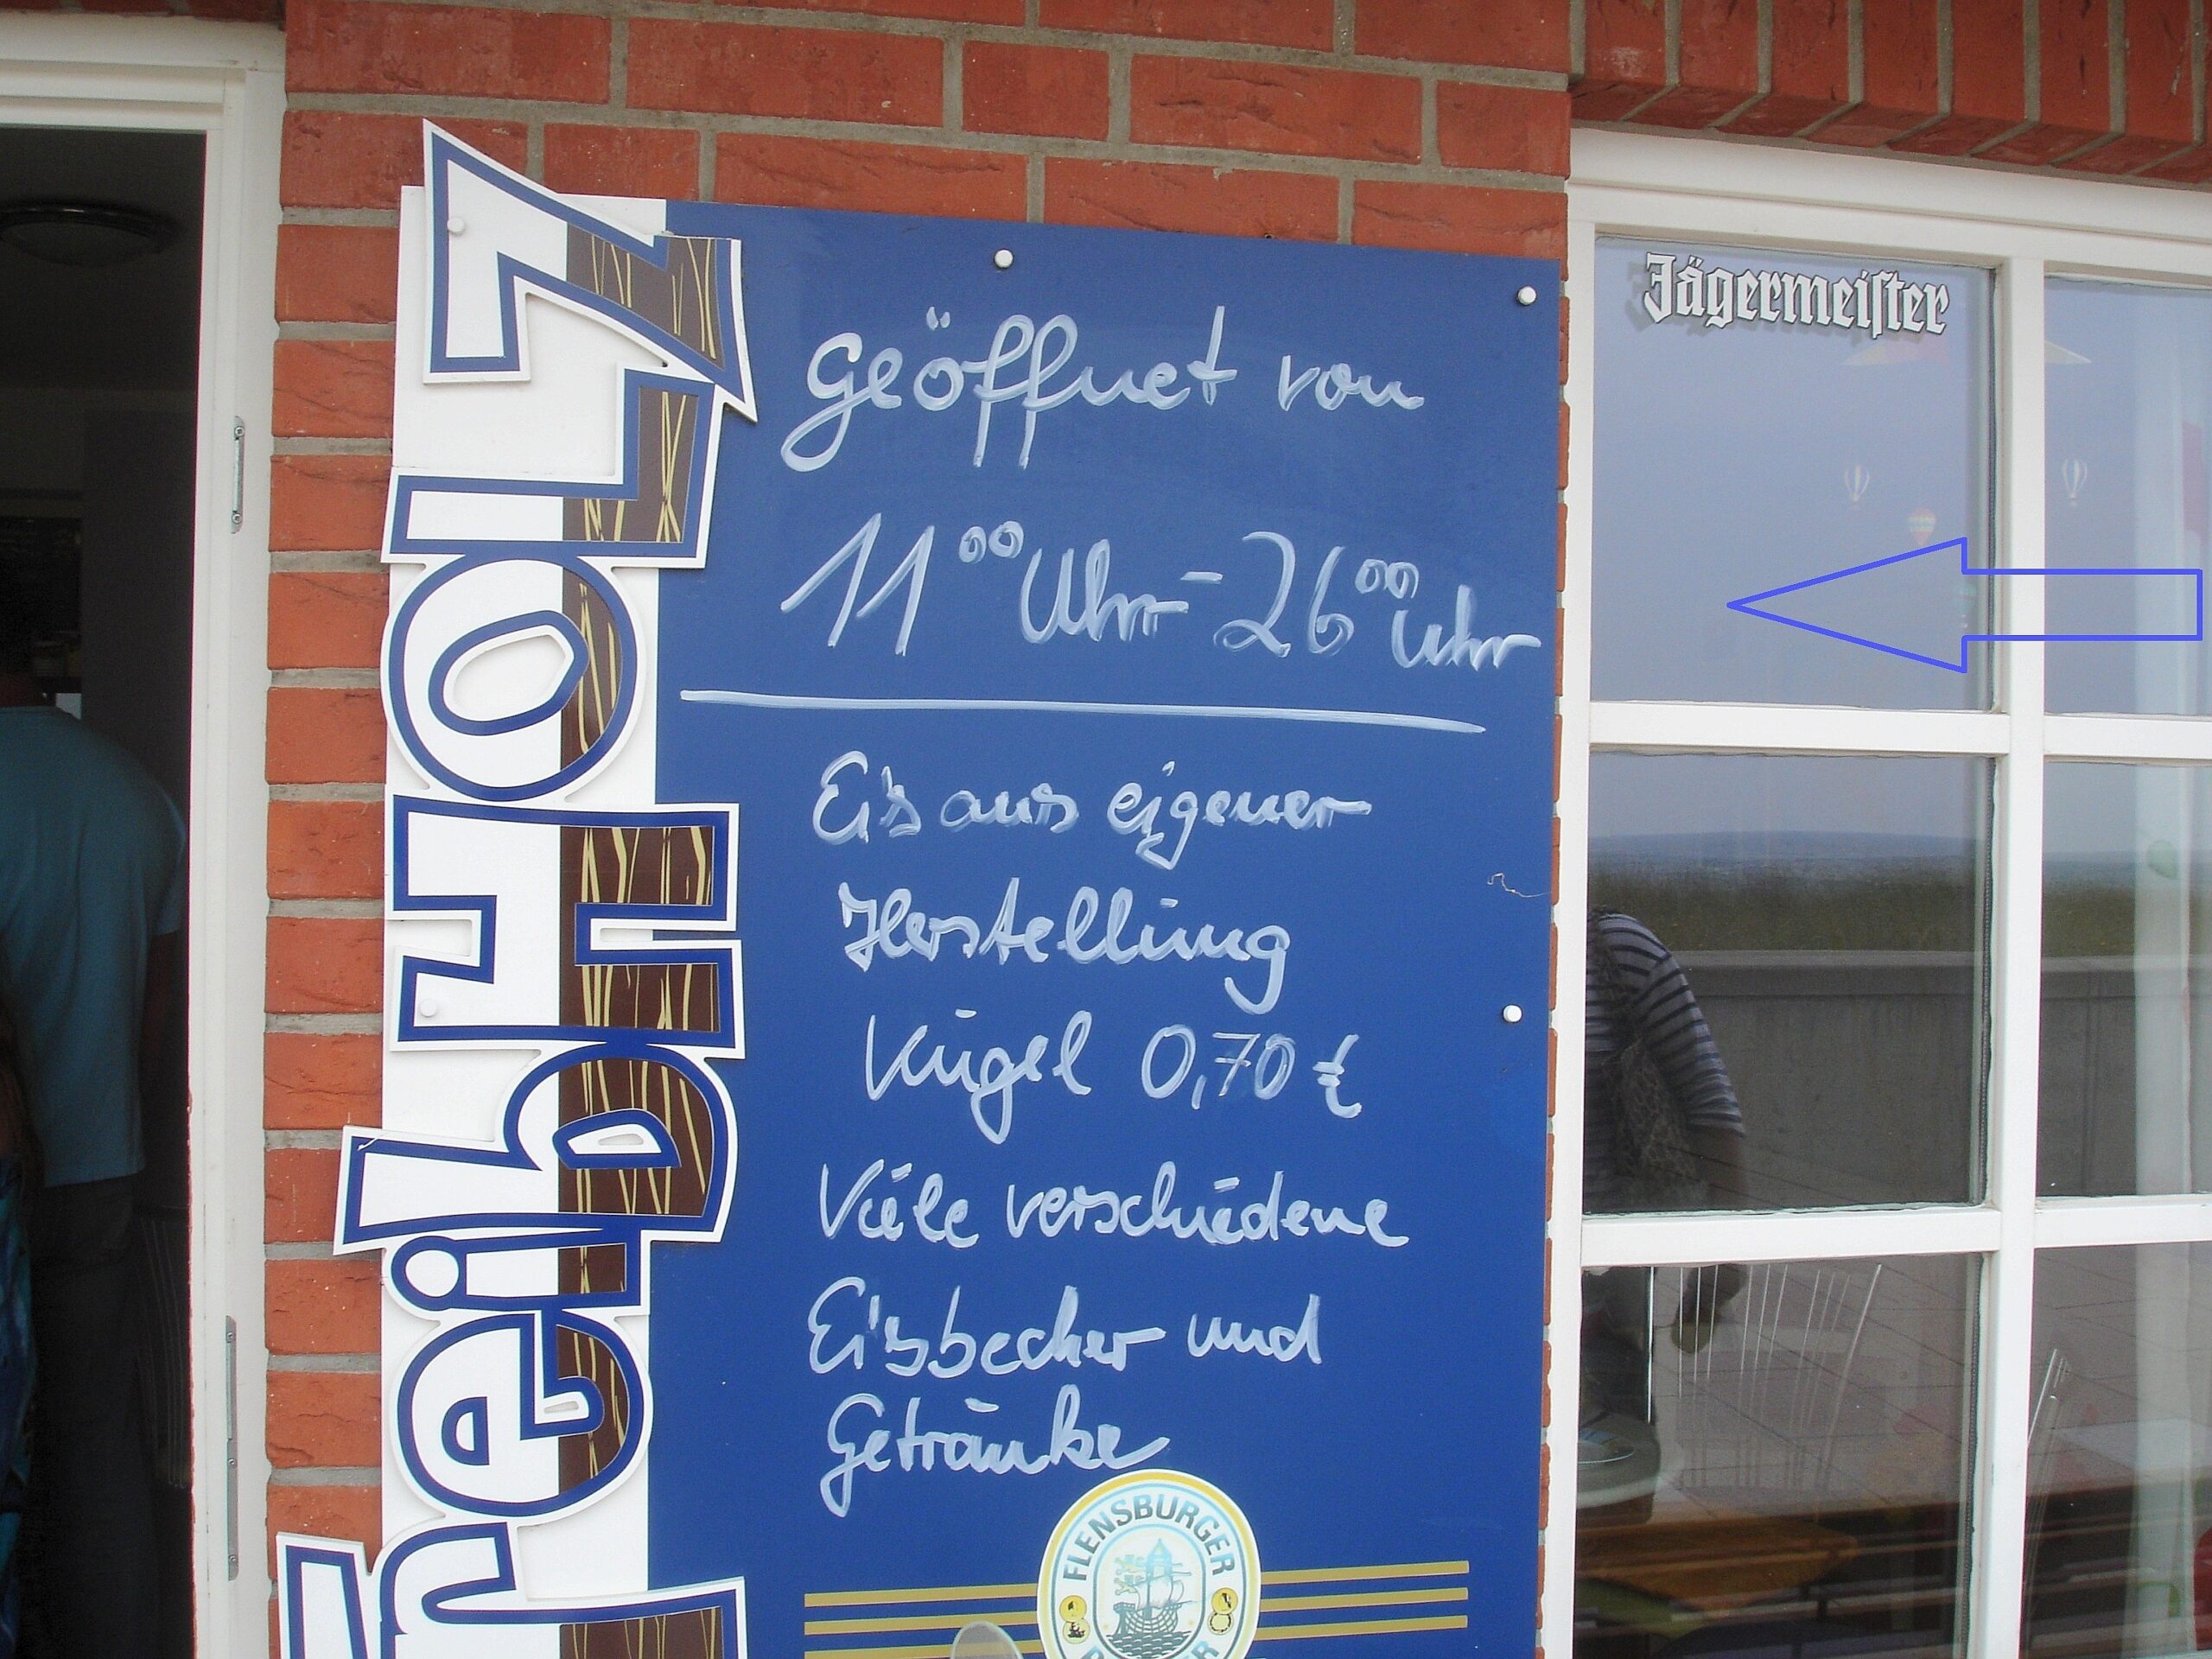 TreibHOLZ
geöffnet von
11⁰⁰ Uhr - 26⁰⁰ Uhr
Eis aus eigener
Herstellung
Kugel 0,70 €
Viele verschiedene
Eisbecher und
Getränke
FLENSBURGER
Jägermeiſter